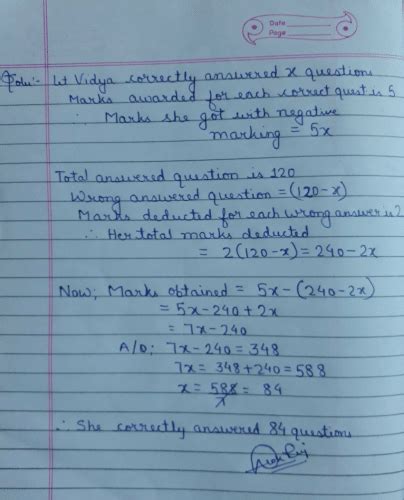 Date
Page
Solu:- let Vidya correctly answered x question
Marks awarded for each correct quest is 5
∴ Marks she got with negative
marking = 5x
Total answered question is 120
Wrong answered question = (120-x)
Marks deducted for each wrong answer is 2
∴ Her total marks deducted
= 2(120-x) = 240-2x
Now; Marks obtained = 5x-(240-2x)
= 5x-240+2x
= 7x-240
A/Q; 7x-240 = 348
7x = 348+240 = 588
x = 588/7 = 84
∴ She correctly answered 84 questions